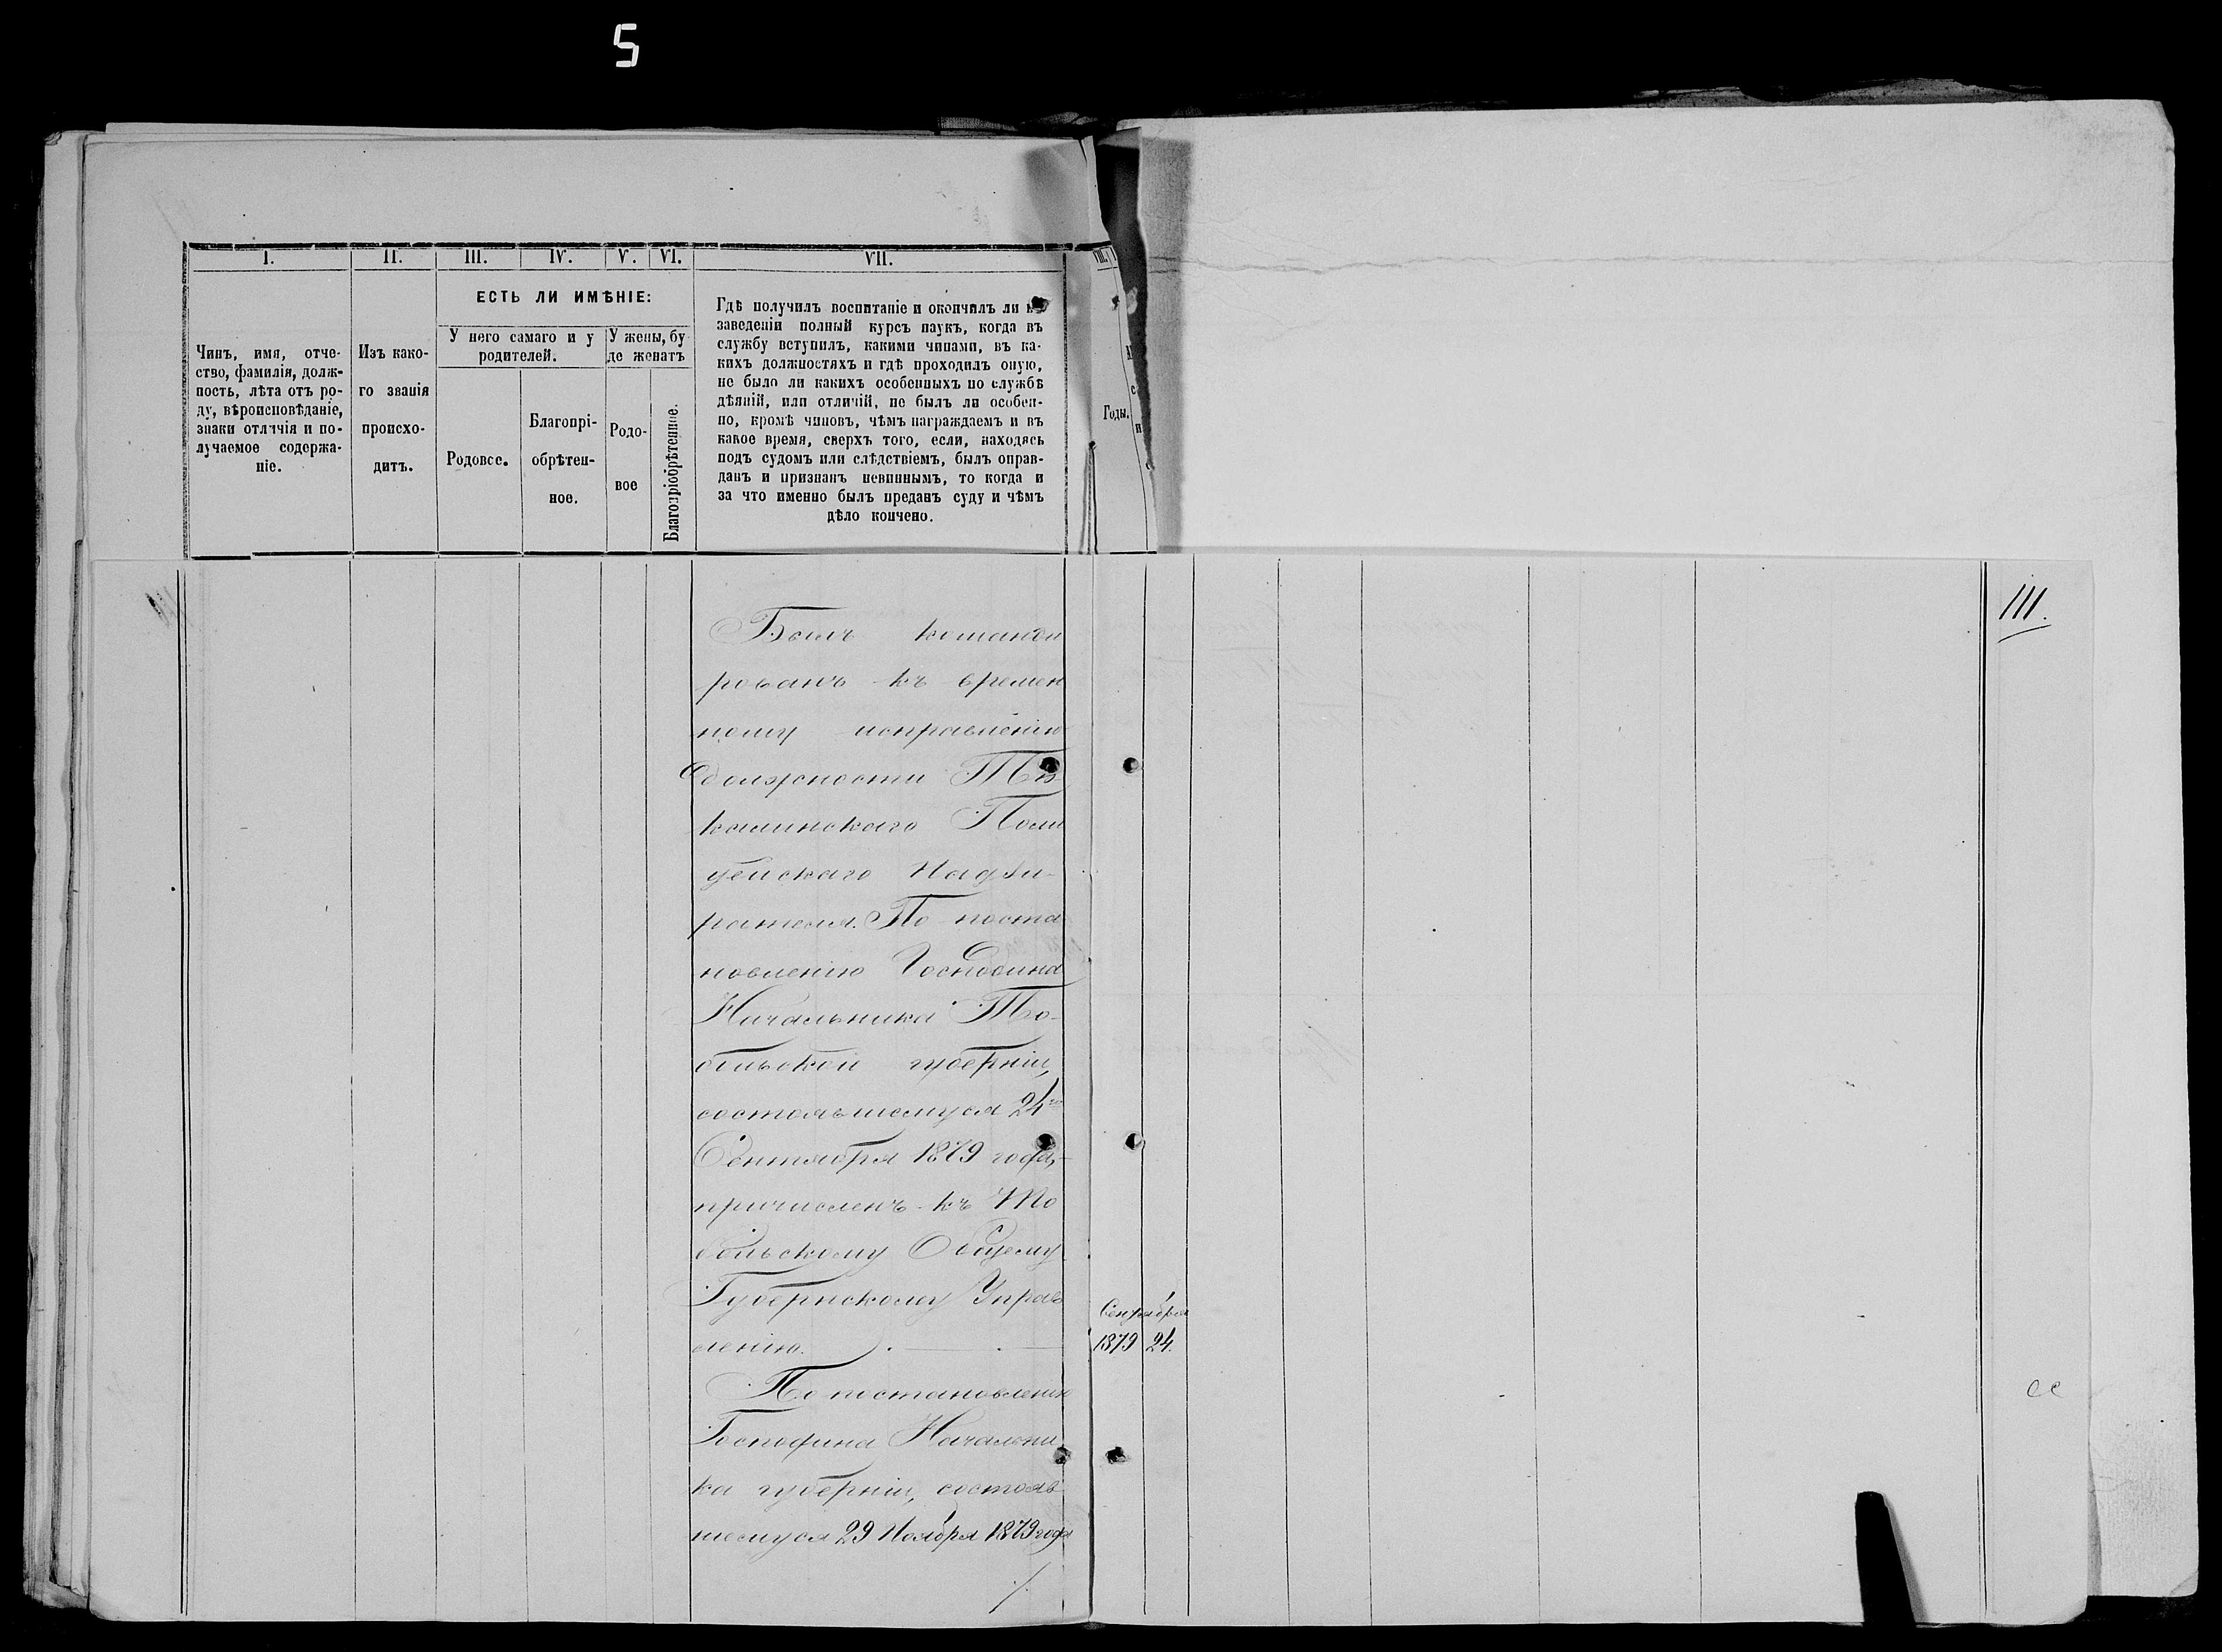 5
I.
II.
III.
IV.
V.
VI.
VII.
VIII.
ЕСТЬ ЛИ ИМѢНІЕ:
У него самаго и у
родителей.
У жены, бу
де женатъ
Чинъ, имя, отче-
ство, фамилія, долж-
ность, лѣта отъ ро-
ду, вѣроисповѣданіе,
знаки отличія и по-
лучаемое содержа-
ніе.
Изъ како-
го званія
происхо-
дитъ.
Родовое.
Благопрі-
обрѣтен-
ное.
Родо-
вое
Благопріобрѣтенное.
Гдѣ получилъ воспитаніе и окончилъ ли въ
заведеніи полный курсъ наукъ, когда въ
службу вступилъ, какими чинами, въ ка-
кихъ должностяхъ и гдѣ проходилъ оную,
не было ли какихъ особенныхъ по службѣ
дѣяній, или отличій, не былъ ли особен-
но, кромѣ чиновъ, чѣмъ награждаемъ и въ
какое время, сверхъ того, если, находясь
подъ судомъ или слѣдствіемъ, былъ оправ-
данъ и признанъ невиннымъ, то когда и
за что именно былъ преданъ суду и чѣмъ
дѣло кончено.
Годы.
111.
Былъ команди
рованъ къ времен
ному исправленію
должности Тю
калинскаго Поли
цейскаго Надзи-
рателя. По поста
новленію Господина
Начальника То-
больской губерніи,
состоявшемуся 24го
Сентября 1879 года,
причисленъ къ То
больскому Общему
Губернскому Управ
ленію.
Сентября
1879 24.
По постановленію
Господина Начальни
ка губерніи, состояв
шемуся 29 Ноября 1879 года